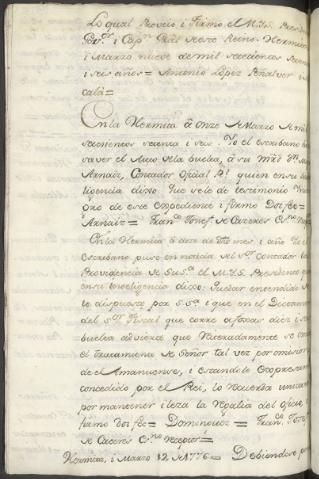 Lo qual Proveio, i Firmo el M.Y.S. Presid
Gov.or i Cap.n Gral de este Reino. Hermita
i Marzo nueve de mil setecientos setenta
i seis años = Antonio Lopez Peñalver
cala =
En la Hermita â onze de Marzo de mil
setecientos setenta i seis. Yo el escribano
saver el Auto de la buelta, â su mrd Dn
Arnaiz, Contador oficial Rl quien en su
ligencia dixo: que se le de testimonio
oro de este expediente i firmo Doi fee =
Arnaiz = Franco Josef de Caceres Cno
En la Hermita â doze de dho mes, i año Yo el
Escribano puse en noticia del Sr Contador
Providencia de Sus.a el M.Y.S. Presidente
en su inteligencia dixo: Quedar entendido
lo dispuesto por S.Sa i que en el Documento
del Sor Fiscal que corre a foxas diez i
buelta advierte que Reiteradamente se
el tratamiento de Señor tal vez por omision
de el Amanuense, i estando le expresam
concedido por el Rei, lo recuerda unicam
por mantener ileza la Regalia del oficio
firmo doi fee = Dominguez = Franco Josef
de Caceres Cno Receptor =
Hermita, i Marzo 12 de 1776 = Debiendose